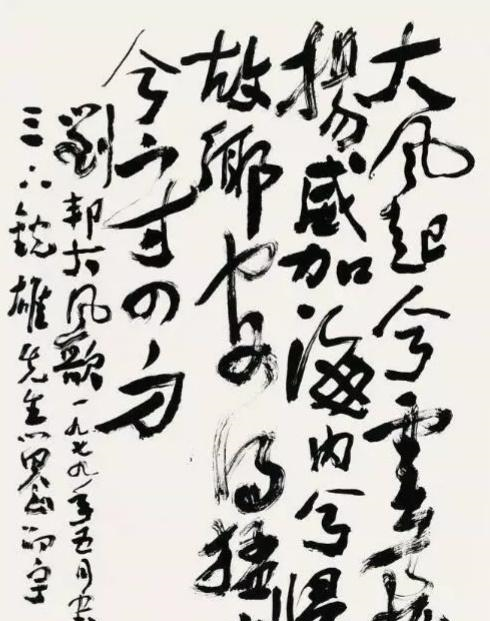 大風起兮雲
揚威加海内兮歸
故鄉安得猛
兮守四方
劉邦大風歌一九七九年五月
銳雄先生